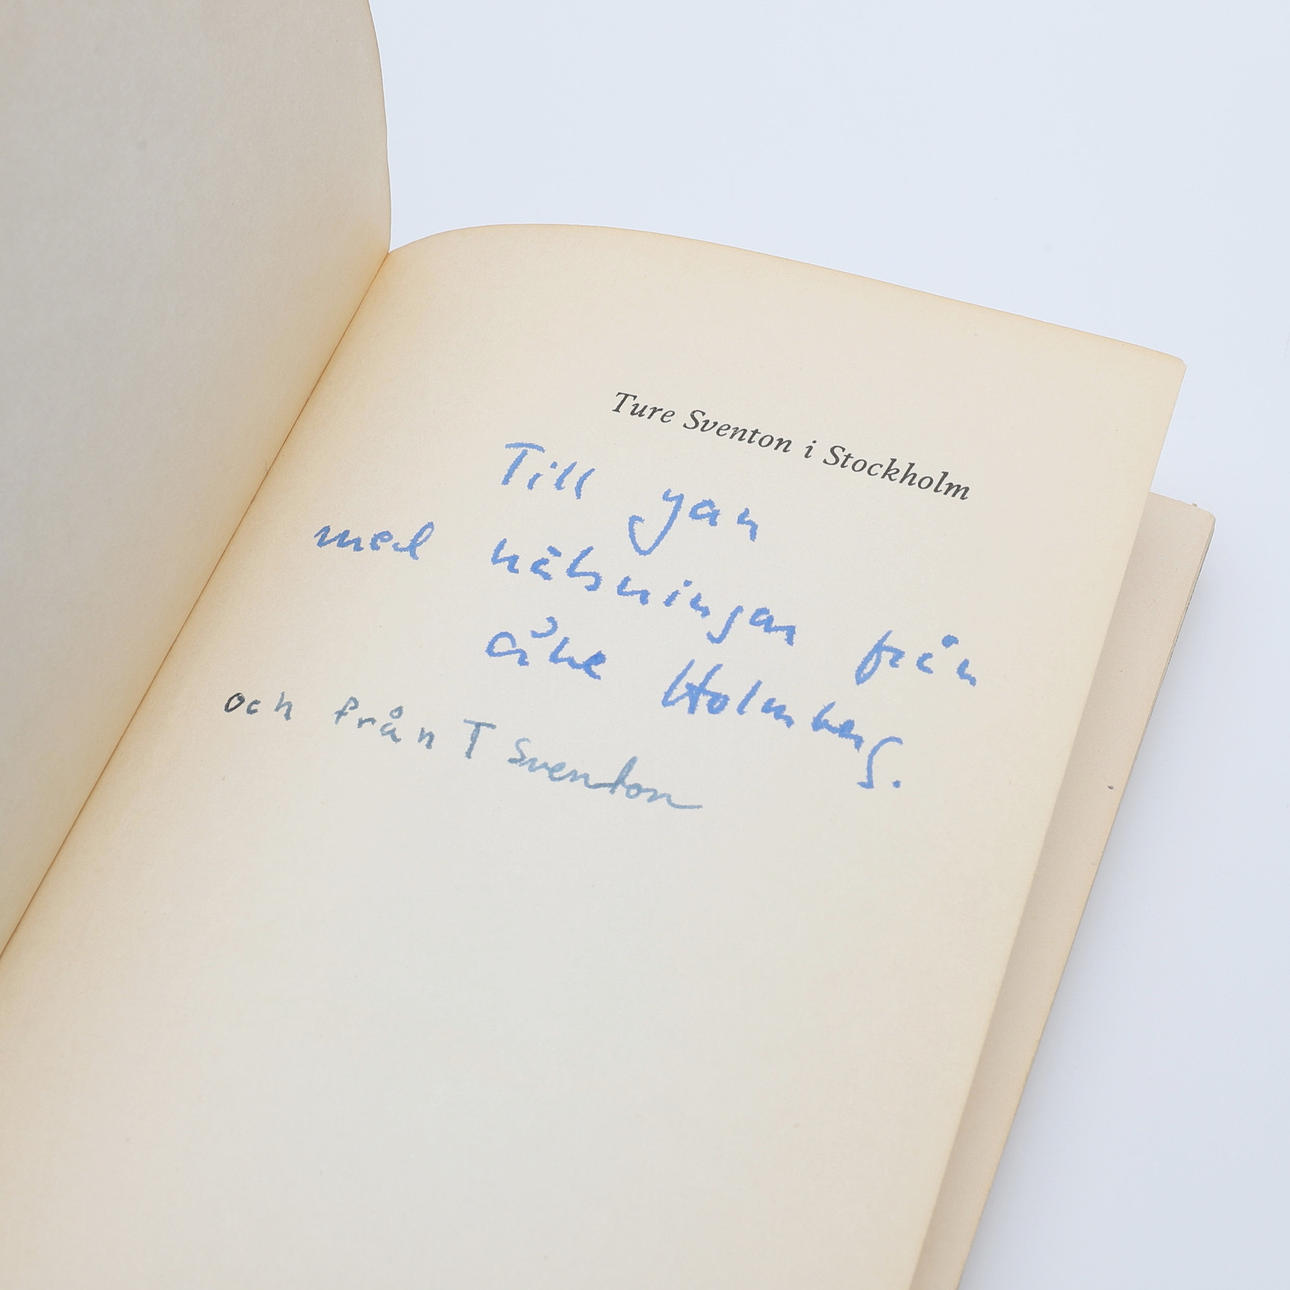 Ture Sventon i Stockholm
Till yan
med hälsningar från
Åke Holmberg.
och från T Sventon